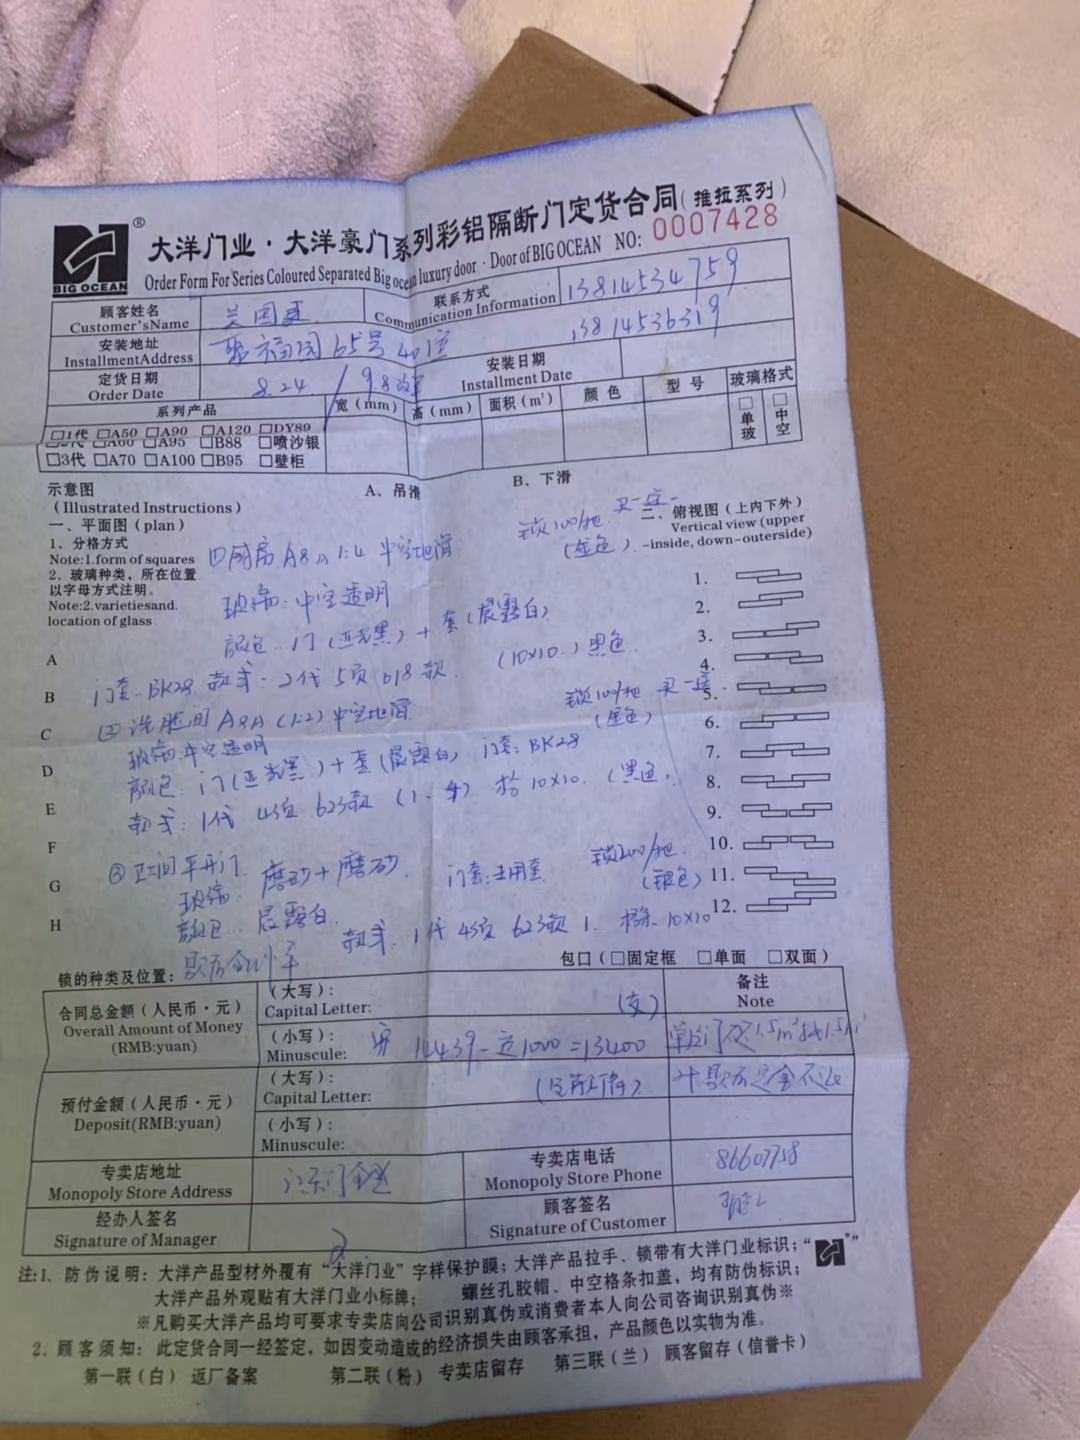 BIG OCEAN
®
大洋门业·大洋豪门系列彩铝隔断门定货合同(推拉系列)
Order Form For Series Coloured Separated Big ocean luxury door · Door of BIG OCEAN NO: 0007428
顾客姓名
Customer'sName
联系方式
Communication Information
13814534759
13814536319
安装地址
InstallmentAddress
65号401室
安装日期
Installment Date
定货日期
Order Date
8.24
9.8
系列产品 宽(mm) 高(mm) 面积(m²) 颜色 型号 玻璃格式
□1代 □A50 □A90 □A120 □DY89
□2代 □A60 □A95 □B88 □喷沙银
□3代 □A70 □A100 □B95 □壁柜
□单玻 □中空
示意图
(Illustrated Instructions)
A、吊滑
B、下滑
一、平面图(plan)
二、俯视图(上内下外)
Vertical view (upper
-inside, down-outerside)
1、分格方式
Note:1.form of squares
2、玻璃种类,所在位置
以字母方式注明。
Note:2.varietiesand.
location of glass
锁100/把 买一送一
(金色)
①厨房 1:4 中空地滑
玻璃:中空透明
颜色:门(亚光黑)+套(晨露白)
门套:BK28 款式:2代5页618款 (10x10)黑色
锁100/把 买一送一
(金色)
② (1:2)中空地滑
玻璃:中空透明
颜色:门(亚光黑)+套(晨露白) 门套:BK28
款式:1代 45页 623款 10x10 (黑色)
③卫生间平开门
玻璃:磨砂+磨砂
锁200/把
(银色)
颜色:晨露白
款式:1代 45页 623款 10x10
A
B
C
D
E
F
G
H
1.
2.
3.
4.
5.
6.
7.
8.
9.
10.
11.
12.
锁的种类及位置:
包口(□固定框 □单面 □双面)
合同总金额(人民币·元)
Overall Amount of Money
(RMB:yuan)
(大写):
Capital Letter:
备注
Note
(小写):
Minuscule:
14439 1000 = 13400
预付金额(人民币·元)
Deposit(RMB:yuan)
(大写):
Capital Letter:
(小写):
Minuscule:
专卖店地址
Monopoly Store Address
专卖店电话
Monopoly Store Phone
86607758
经办人签名
Signature of Manager
顾客签名
Signature of Customer
注:1、防伪说明:大洋产品型材外覆有“大洋门业”字样保护膜;大洋产品拉手、锁带有大洋门业标识;“ ”
大洋产品外观贴有大洋门业小标牌; 螺丝孔胶帽、中空格条扣盖,均有防伪标识;
※凡购买大洋产品均可要求专卖店向公司识别真伪或消费者本人向公司咨询识别真伪※
2、顾客须知:此定货合同一经签定,如因变动造成的经济损失由顾客承担,产品颜色以实物为准。
第一联(白) 返厂备案 第二联(粉) 专卖店留存 第三联(兰) 顾客留存(信誉卡)